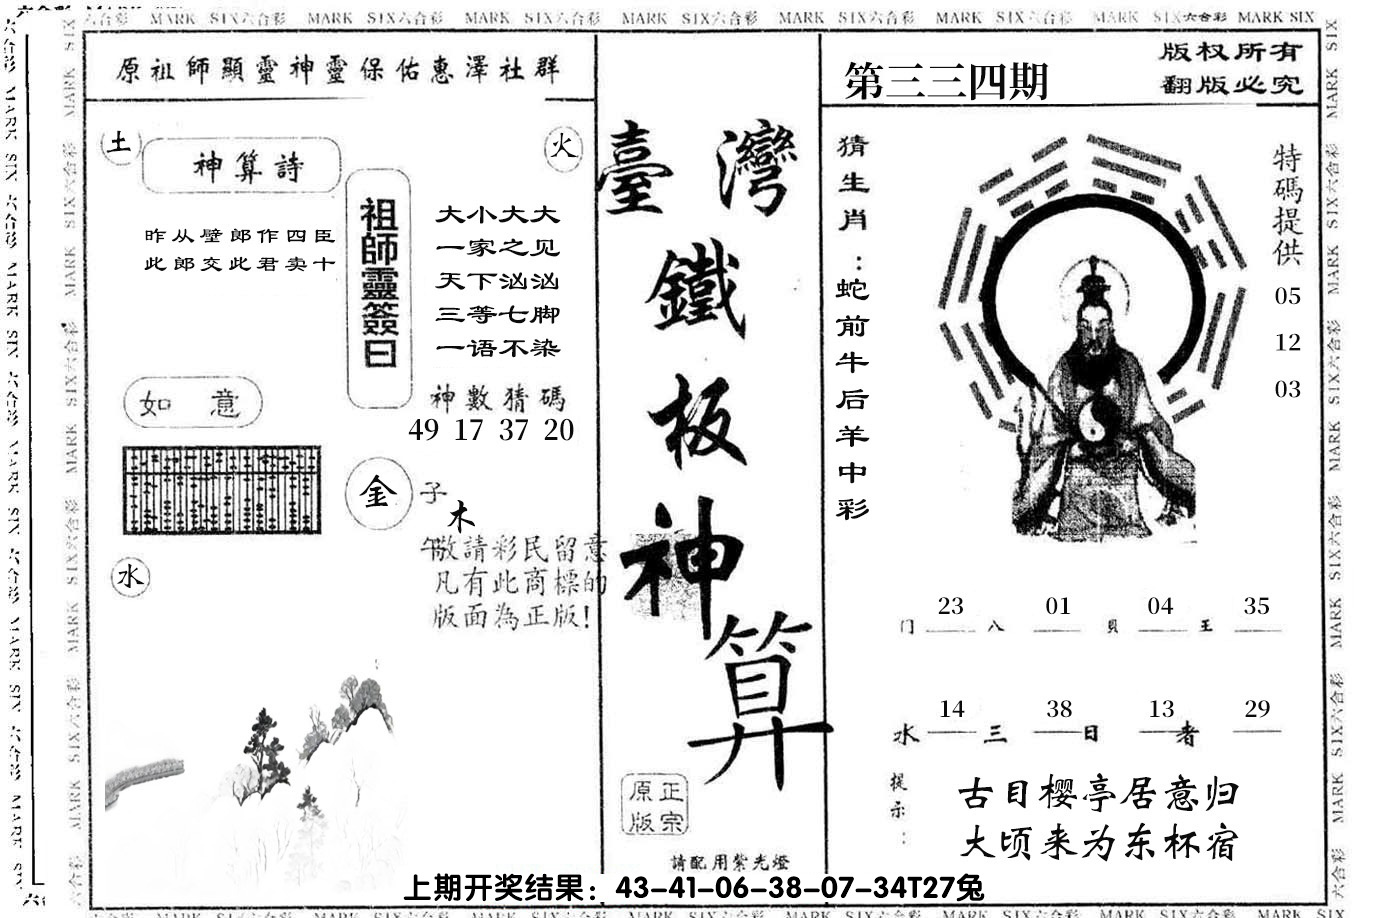 原祖師顯靈神靈保佑惠澤社群
土
神算詩
火
昨从壁郎作四臣
此郎交此君卖十
祖師靈簽曰
大小大大
一家之见
天下汹汹
三等七脚
一语不染
神數猜碼
49 17 37 20
如 意
金
子
木
午
敬請彩民留意
凡有此商標的
版面為正版!
水
臺灣
鐵
板
神
算
正宗
原版
請配用紫光燈
第三三四期
版权所有
翻版必究
猜生肖:蛇前牛后羊中彩
特碼提供
05
12
03
23 01 04 35
门 八 貝 王
14 38 13 29
水 三 日 者
提示:
古目樱亭居意归
大顷来为东杯宿
上期开奖结果：43-41-06-38-07-34T27兔
MARK SIX六合彩 MARK SIX六合彩 MARK SIX六合彩 MARK SIX六合彩 MARK SIX六合彩 MARK SIX六合彩 MARK SIX六合彩 MARK SIX